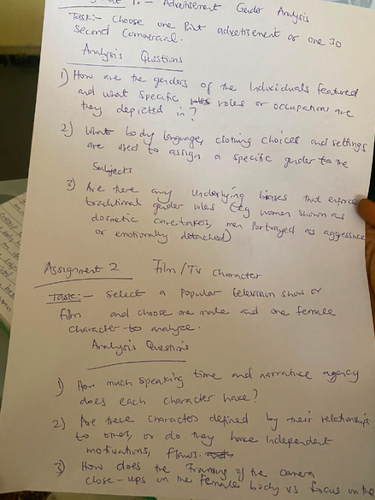 1:- Advertisement Gender Analysis
Task:- Choose one Print advertisement or one 30
second Commercial.
Analysis Questions
1) How are the genders of the Individuals featured
and what specific roles or occupations are
they depicted in?
2) What body language, clothing choices and settings
are used to assign a specific gender to the
Subjects
3) Are there any underlying biases that enforce
traditional gender roles (eg women shown as
domestic caretakers, men portrayed as aggressive
or emotionally detached)
Assignment 2 Film/TV Character
Task:- Select a popular television show or
film and choose one male and one female
character to analyze.
Analysis Questions
1) How much speaking time and narrative agency
does each character have?
2) Are these characters defined by their relationships
to others, or do they have Independent
motivations, flaws.
3) How does the Framing of the camera
close-ups on the female body vs focus on the